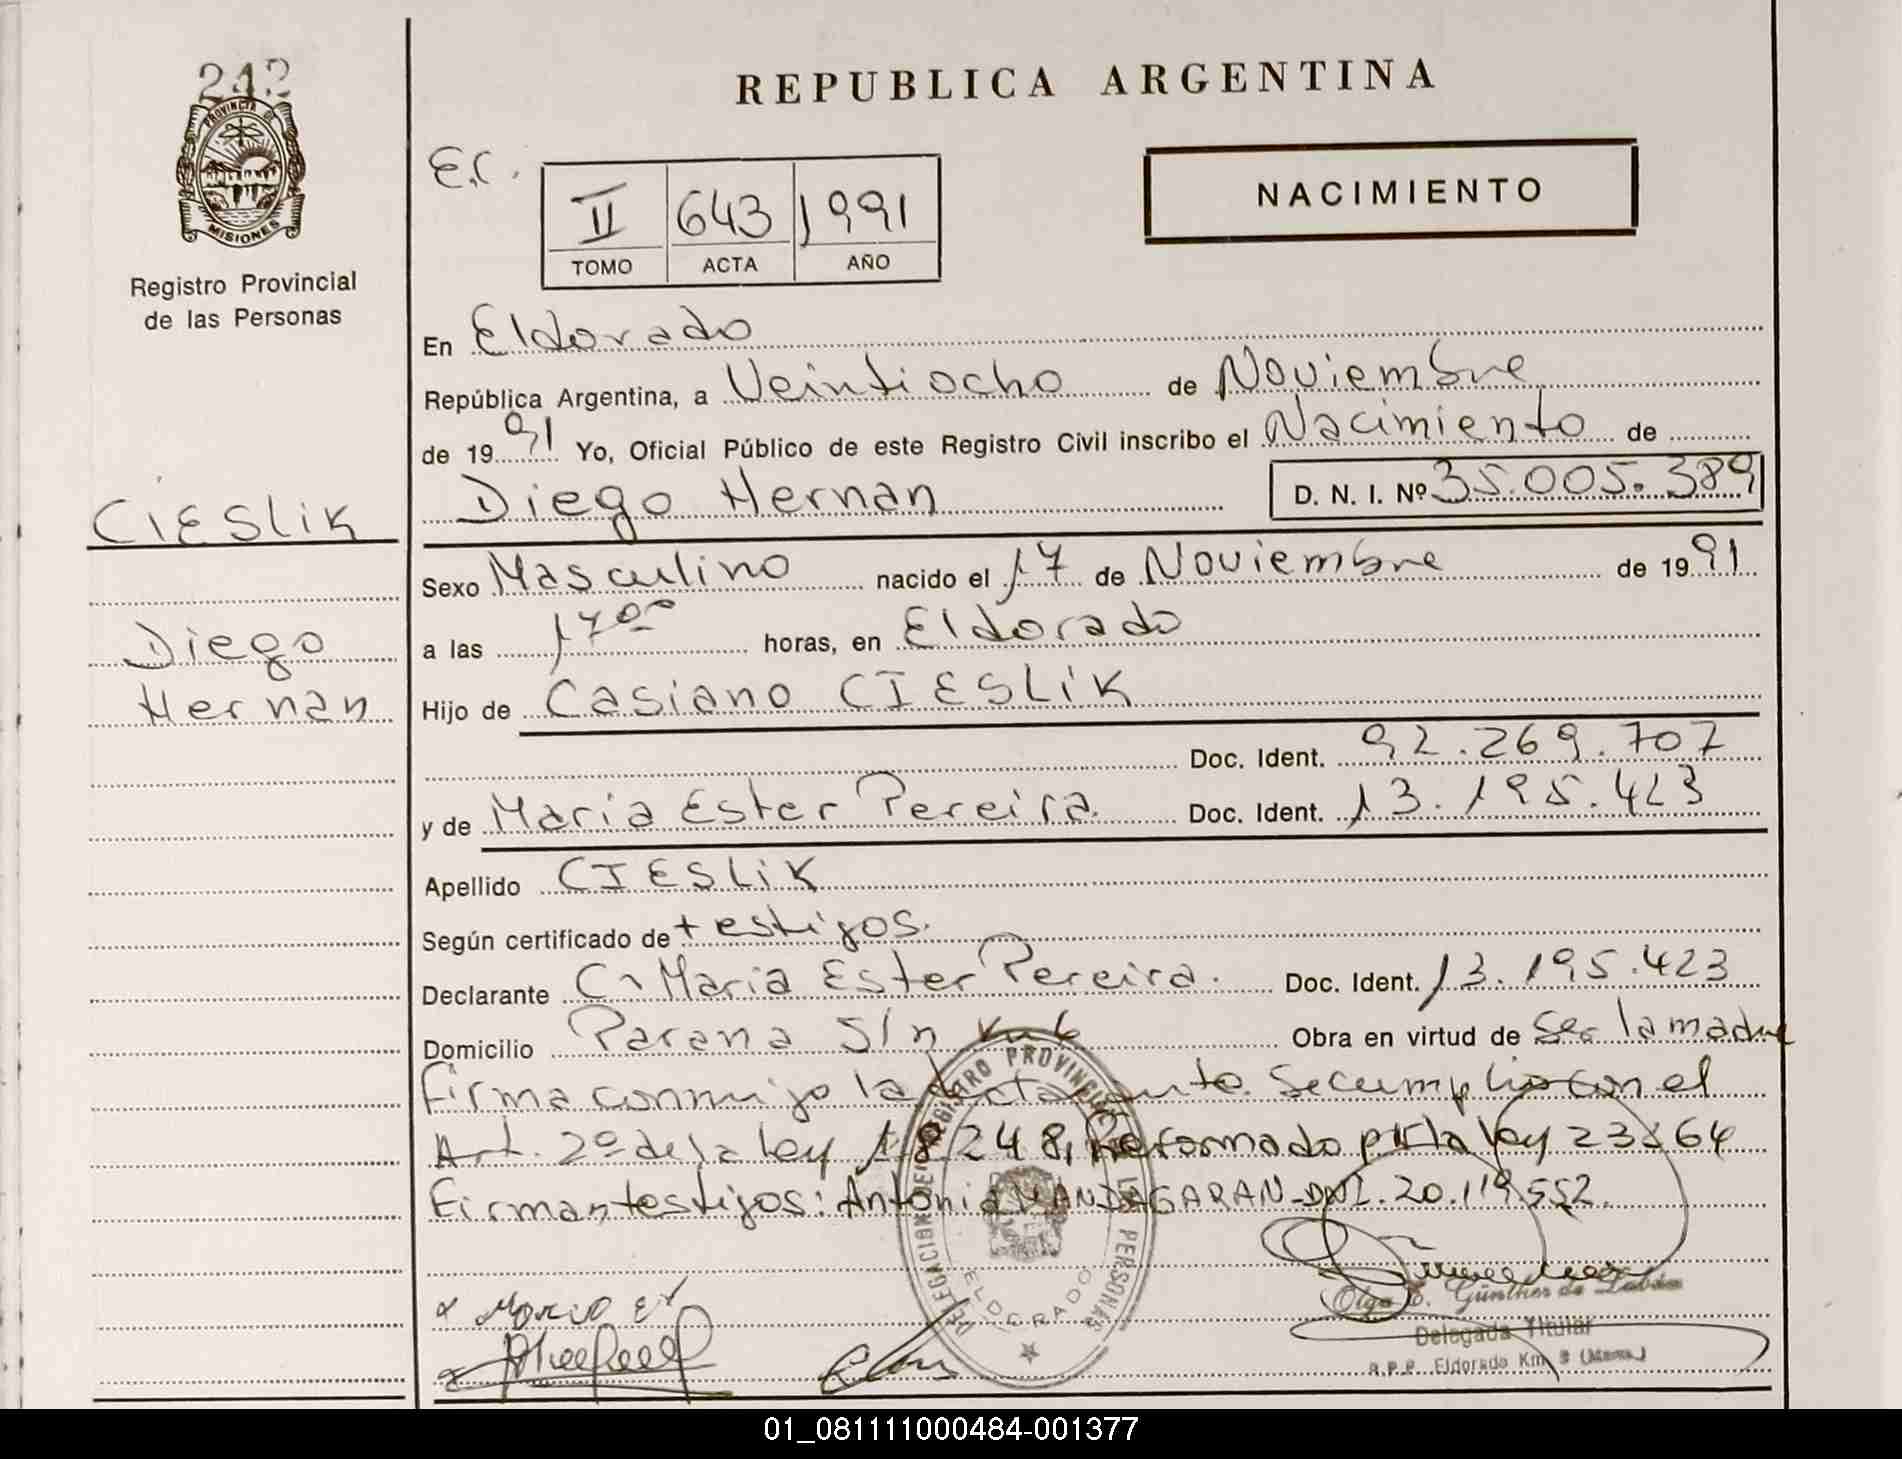 242
PROVINCIA DE
MISIONES
Registro Provincial
de las Personas
CIESLIK
Diego
Hernan
REPUBLICA ARGENTINA
E.C.
II 643 1991
TOMO ACTA AÑO
NACIMIENTO
En Eldorado
República Argentina, a Veintiocho de Noviembre
de 1991 Yo, Oficial Público de este Registro Civil inscribo el Nacimiento de
Diego Hernan D. N. I. Nº 35.005.389
Sexo Masculino nacido el 17 de Noviembre de 1991
a las 17 00 horas, en Eldorado
Hijo de Casiano CIESLIK
Doc. Ident. 92.269.707
y de Maria Ester Pereira. Doc. Ident. 13.195.423
Apellido CIESLIK
Según certificado de testigos.
Declarante Maria Ester Pereira. Doc. Ident. 13.195.423
Domicilio Parana S/n Km 6 Obra en virtud de Ser la madre
firma conmigo la declarante. Se cumplio con el
Art. 2º de la ley 18248, Reformado por la ley 23264
Firman testigos: Antonia MANDAGARAN-DNI.20.119.552.
DELEGACION DEL REGISTRO PROVINCIAL DE LAS PERSONAS
ELDORADO
Maria Est
Olga E. Günther de
Delegada Titular
R.P.P. Eldorado Km. 9 (Mnes.)
01_081111000484-001377